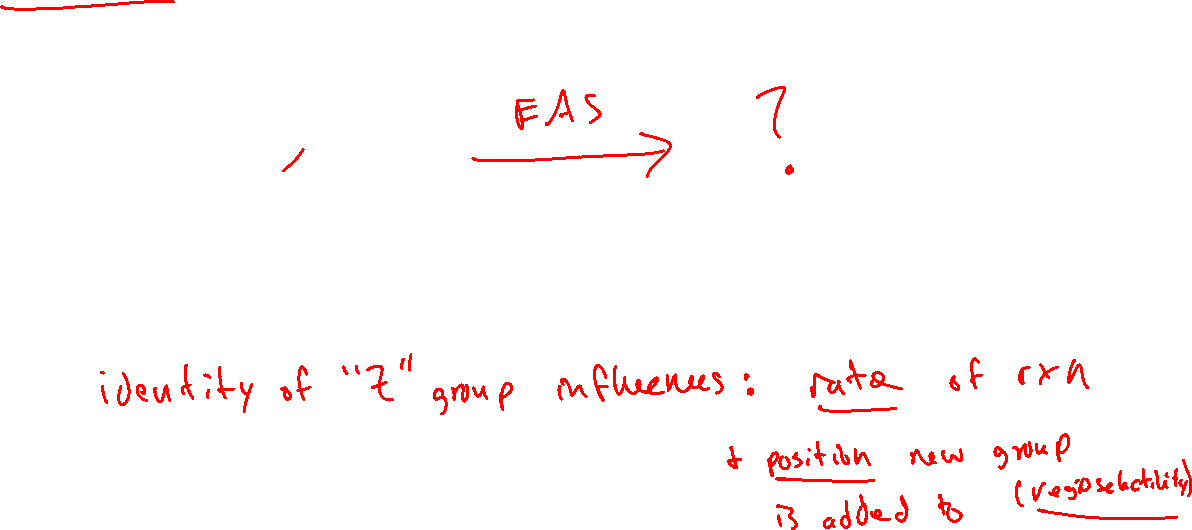 EAS ?
identity of "Z" group influences: rate of rxn
+ position new group
is added to (regioselectility)